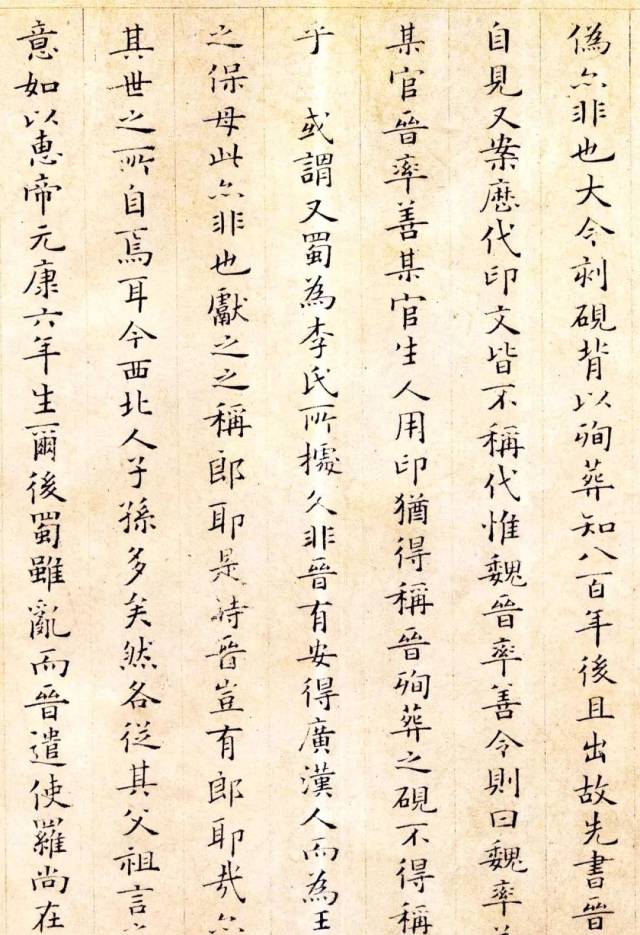 偽亦非也大令刻硯背以殉葬知八百年後且出故先書晉
自見又案歷代印文皆不稱代惟魏晉率善令則曰魏率
某官晉率善某官生人用印猶得稱晉殉葬之硯不得稱
乎 或謂又蜀為李氏所據久非晉有安得廣漢人而為王
之保母此亦非也獻之之稱郎耶是時晉豈有郎耶哉亦
其世之所自焉耳今西北人子孫多矣然各從其父祖言
意如以惠帝元康六年生爾後蜀雖亂而晉遣使羅尚在